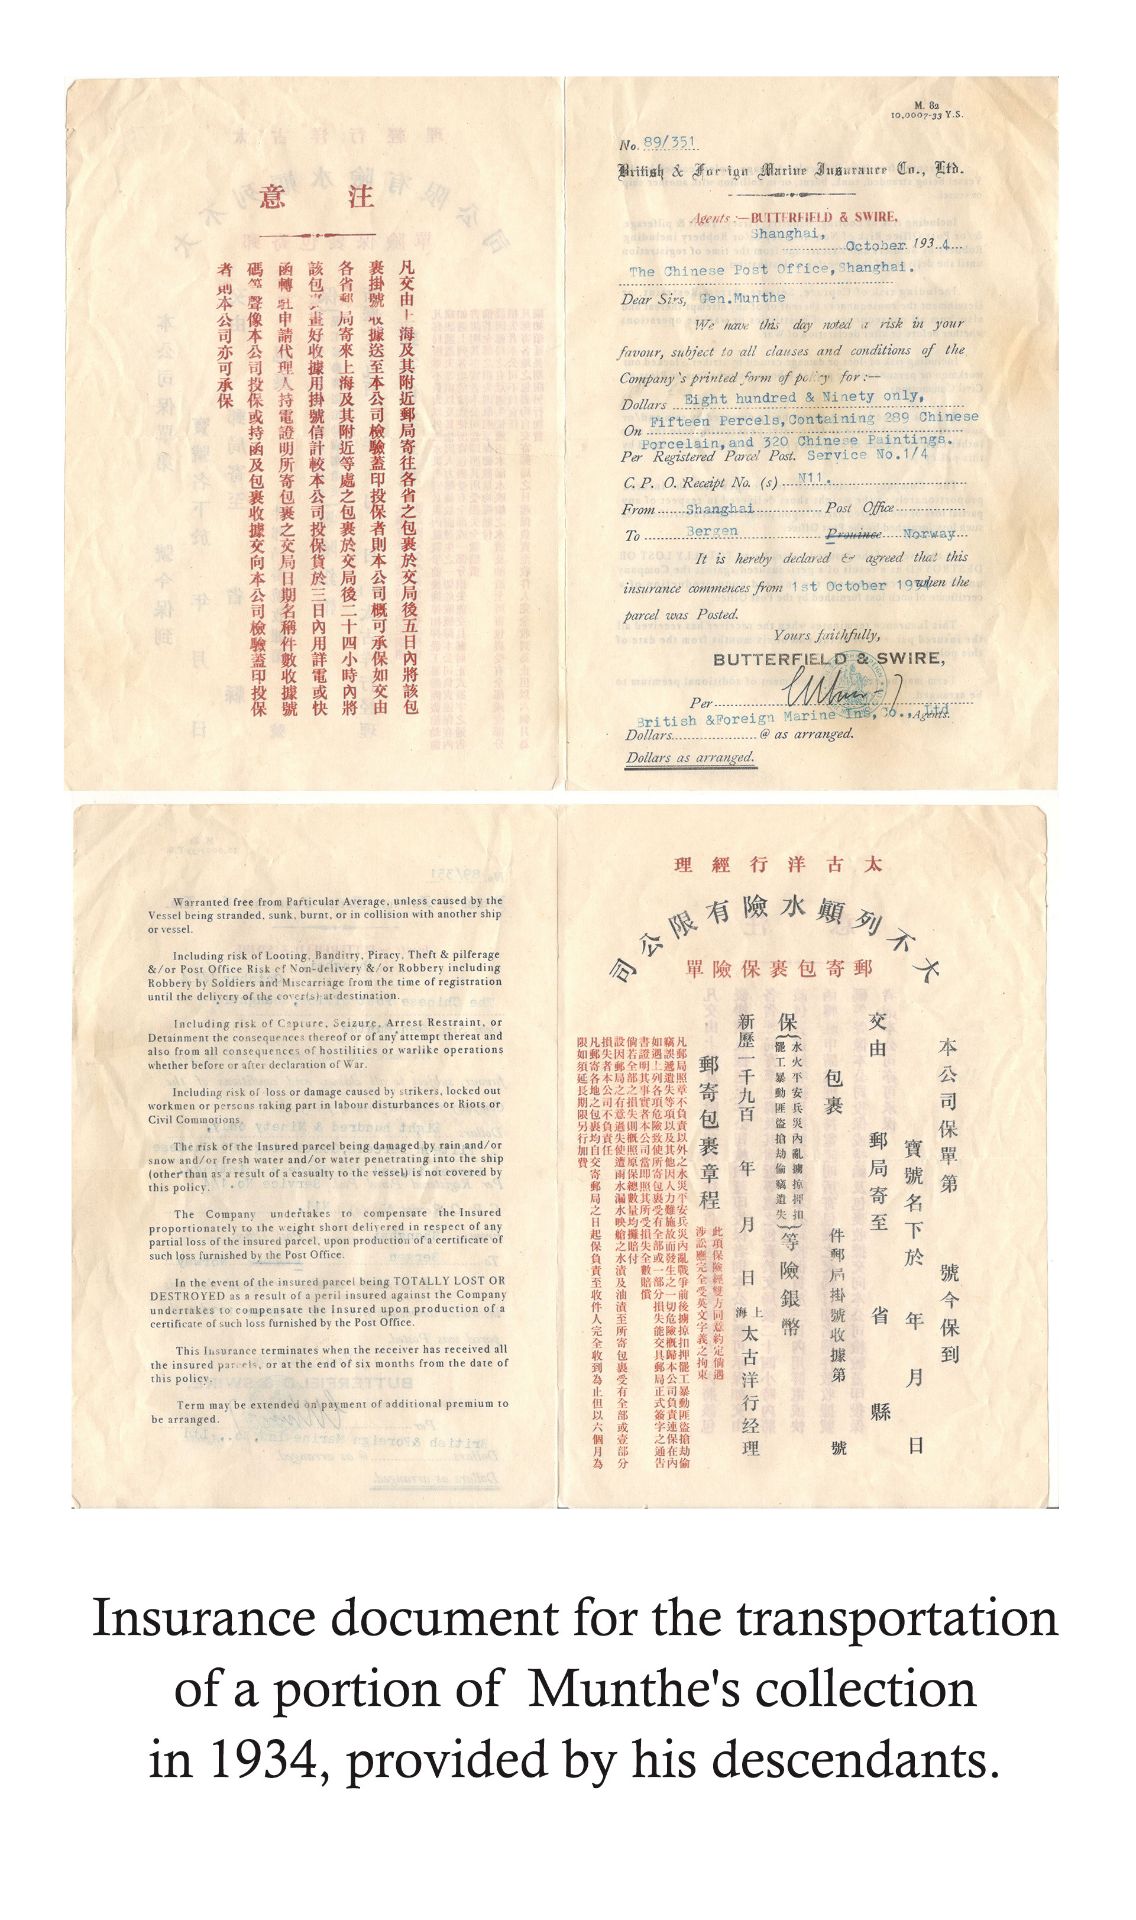 意 注
凡交由上海及其附近郵局寄往各省之包裹於交局後五日內將該包
裹掛號收據送至本公司檢驗蓋印投保者則本公司概可承保如交由
各省郵局寄來上海及其附近等處之包裹於交局後二十四小時內將
該包裹畫好收據用掛號信計較本公司投保貨於三日內用詳電或快
函轉駐申請代理人持電證明所寄包裹之交局日期名稱件數收據號
碼等聲像本公司投保或持函及包裹收據交向本公司檢驗蓋印投保
者則本公司亦可承保
M. 82
10,0007-33 Y.S.
No. 89/351
British & Foreign Marine Insurance Co., Ltd.
Agents:—BUTTERFIELD & SWIRE,
Shanghai,
October 1934
The Chinese Post Office, Shanghai.
Dear Sirs, Gen.Munthe
We have this day noted a risk in your
favour, subject to all clauses and conditions of the
Company's printed form of policy for:—
Dollars Eight hundred & Ninety only,
On Fifteen Percels,Containing 289 Chinese
Porcelain,and 320 Chinese Paintings.
Per Registered Parcel Post. Service No.1/4
C. P. O. Receipt No. (s) N11.
From Shanghai Post Office
To Bergen Province Norway
It is hereby declared & agreed that this
insurance commences from 1st October 1934 when the
parcel was Posted.
Yours faithfully,
BUTTERFIELD & SWIRE,
Per
British &Foreign Marine Ins, Co., Ltd Agents.
Dollars @ as arranged.
Dollars as arranged.
Warranted free from Particular Average, unless caused by the
Vessel being stranded, sunk, burnt, or in collision with another ship
or vessel.
Including risk of Looting, Banditry, Piracy, Theft & pilferage
&/or Post Office Risk of Non-delivery &/or Robbery including
Robbery by Soldiers and Miscarriage from the time of registration
until the delivery of the cover(s) at destination.
Including risk of Capture, Seizure, Arrest Restraint, or
Detainment the consequences thereof or of any attempt thereat and
also from all consequences of hostilities or warlike operations
whether before or after declaration of War.
Including risk of loss or damage caused by strikers, locked out
workmen or persons taking part in labour disturbances or Riots or
Civil Commotions.
The risk of the Insured parcel being damaged by rain and/or
snow and/or fresh water and/or water penetrating into the ship
(other than as a result of a casualty to the vessel) is not covered by
this policy.
The Company undertakes to compensate the Insured
proportionately to the weight short delivered in respect of any
partial loss of the insured parcel, upon production of a certificate of
such loss furnished by the Post Office.
In the event of the insured parcel being TOTALLY LOST OR
DESTROYED as a result of a peril insured against the Company
undertakes to compensate the Insured upon production of a
certificate of such loss furnished by the Post Office.
This Insurance terminates when the receiver has received all
the insured parcels, or at the end of six months from the date of
this policy.
Term may be extended on payment of additional premium to
be arranged.
理經行洋古太
司公限有險水顚列不大
單險保裹包寄郵
本公司保單第 號今保到
寶號名下於 年 月 日
交由 郵局寄至 省 縣
包裹 件郵局掛號收據第 號
保(水火平安兵災內亂擄掠押扣
罷工暴動匪盜搶劫偷竊遺失)等險銀幣
新歷一千九百 年 月 日 上海太古洋行经理
郵寄包裹章程
此項保險經雙方同意約定倘遇
涉訟應完全受英文字義之拘束
凡郵局照章不負責以外之水災平安兵災內亂戰爭前後擄掠扣押罷工暴動匪盜搶劫偷
竊誤遞遺失等項以及其他因人力難施故而發生之一切危險概歸本公司負責連保在內
如遇上列各項危險致使所寄包裹受有全部或一部分損失能交具郵局正式簽字之通告
書證明其事實者本公司當即照其所受損失全數賠償
倘若全部之損失則概照原保總數量均攤賠付
設因郵局之有意過失使遭雨水漏水映艙之水漬及油漬至所寄包裹受有全部或壹部分
損失者本公司不負責任
凡郵寄各地之包裹均自交寄郵局之日起保負責至收件人完全收到為止但以六個月為
限如須延長期限另行加費
Insurance document for the transportation
of a portion of Munthe's collection
in 1934, provided by his descendants.